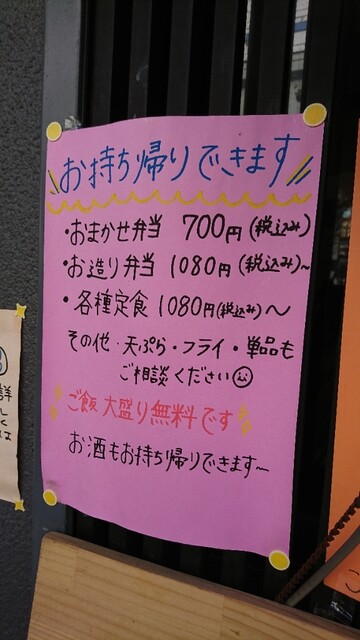 お持ち帰りできます
・おまかせ弁当 700円(税込み)
・お造り弁当 1080円(税込み)~
・各種定食 1080円(税込み)~
その他・天ぷら・フライ・単品も
ご相談ください
ご飯大盛り無料です
お酒もお持ち帰りできます~